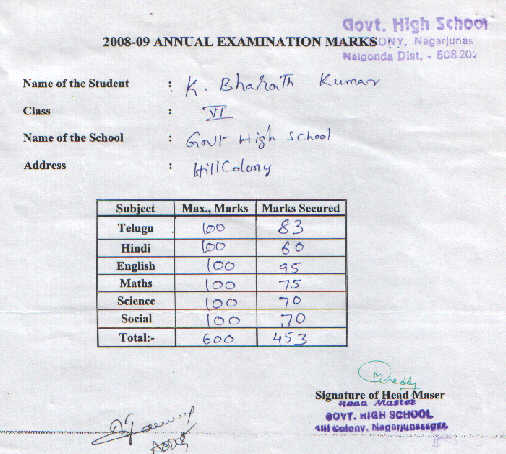 Govt. High School
2008-09 ANNUAL EXAMINATION MARKS ONY, Nagarjunas
Nalgonda Dist. - 508202
Name of the Student : K. Bharath Kumar
Class : VI
Name of the School : Govt High School
Address : Hill Colony
Subject Max., Marks Marks Secured
Telugu 100 83
Hindi 100 60
English 100 95
Maths 100 75
Science 100 70
Social 100 70
Total:- 600 453
Signature of Head Maser
Head Master
GOVT. HIGH SCHOOL
Hill Colony, Nagarjunasagar